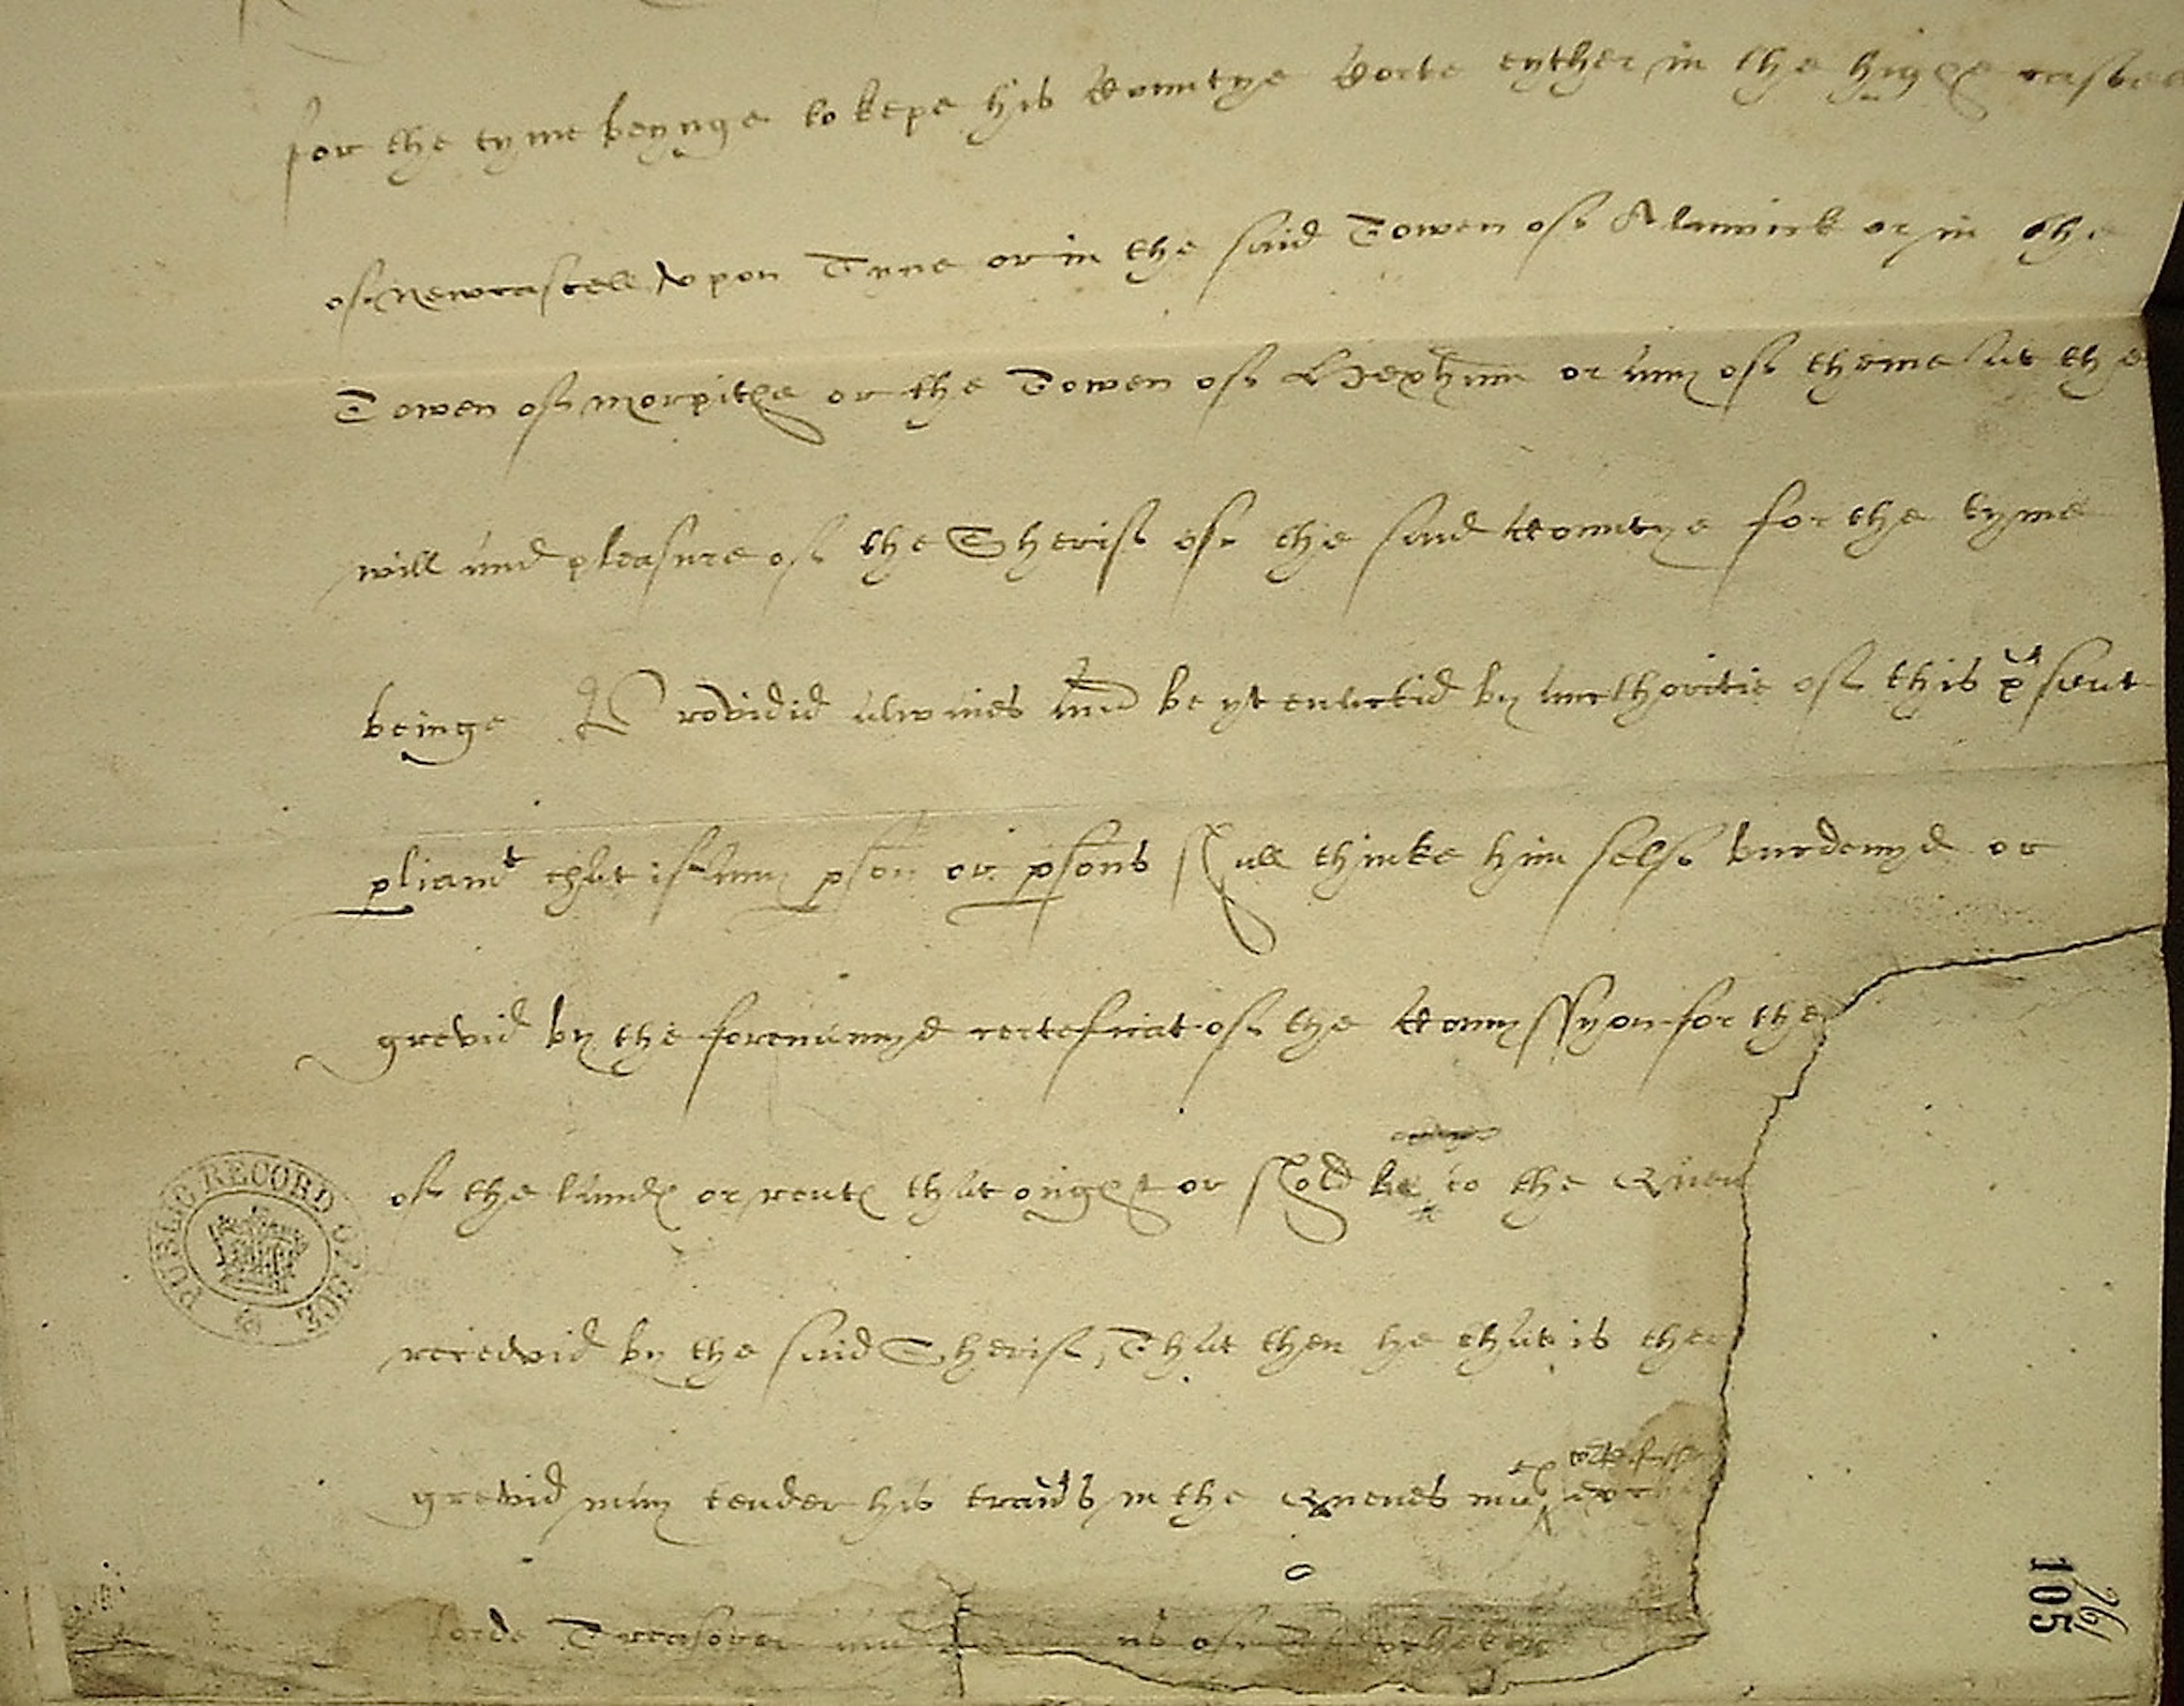 for the tyme beynge to kepe his Countye Corte eyther in the highe castell
of Newcastell vpon Tyne or in the said Towen of Alnwick or in the
Towen of Morpithe or the Towen of Hexham or any of theme at the
will and pleasure of the Sherif of the said Countye for the tyme
beinge Providid alwaies and be yt enactid by aucthoritie of this p̃sent
pliamt that if any pson or psons shall thinke him self burdenyd or
grevid by the forenamyd certeficat of the Comyssyon for the
of the lands or rents that ought or shold be to the Quen
receavid by the said Sherif, That then he that is ther
grevid may tender his travs in the Quenes
lorde Treasorer and of
PUBLIC RECORD OFFICE
105
261